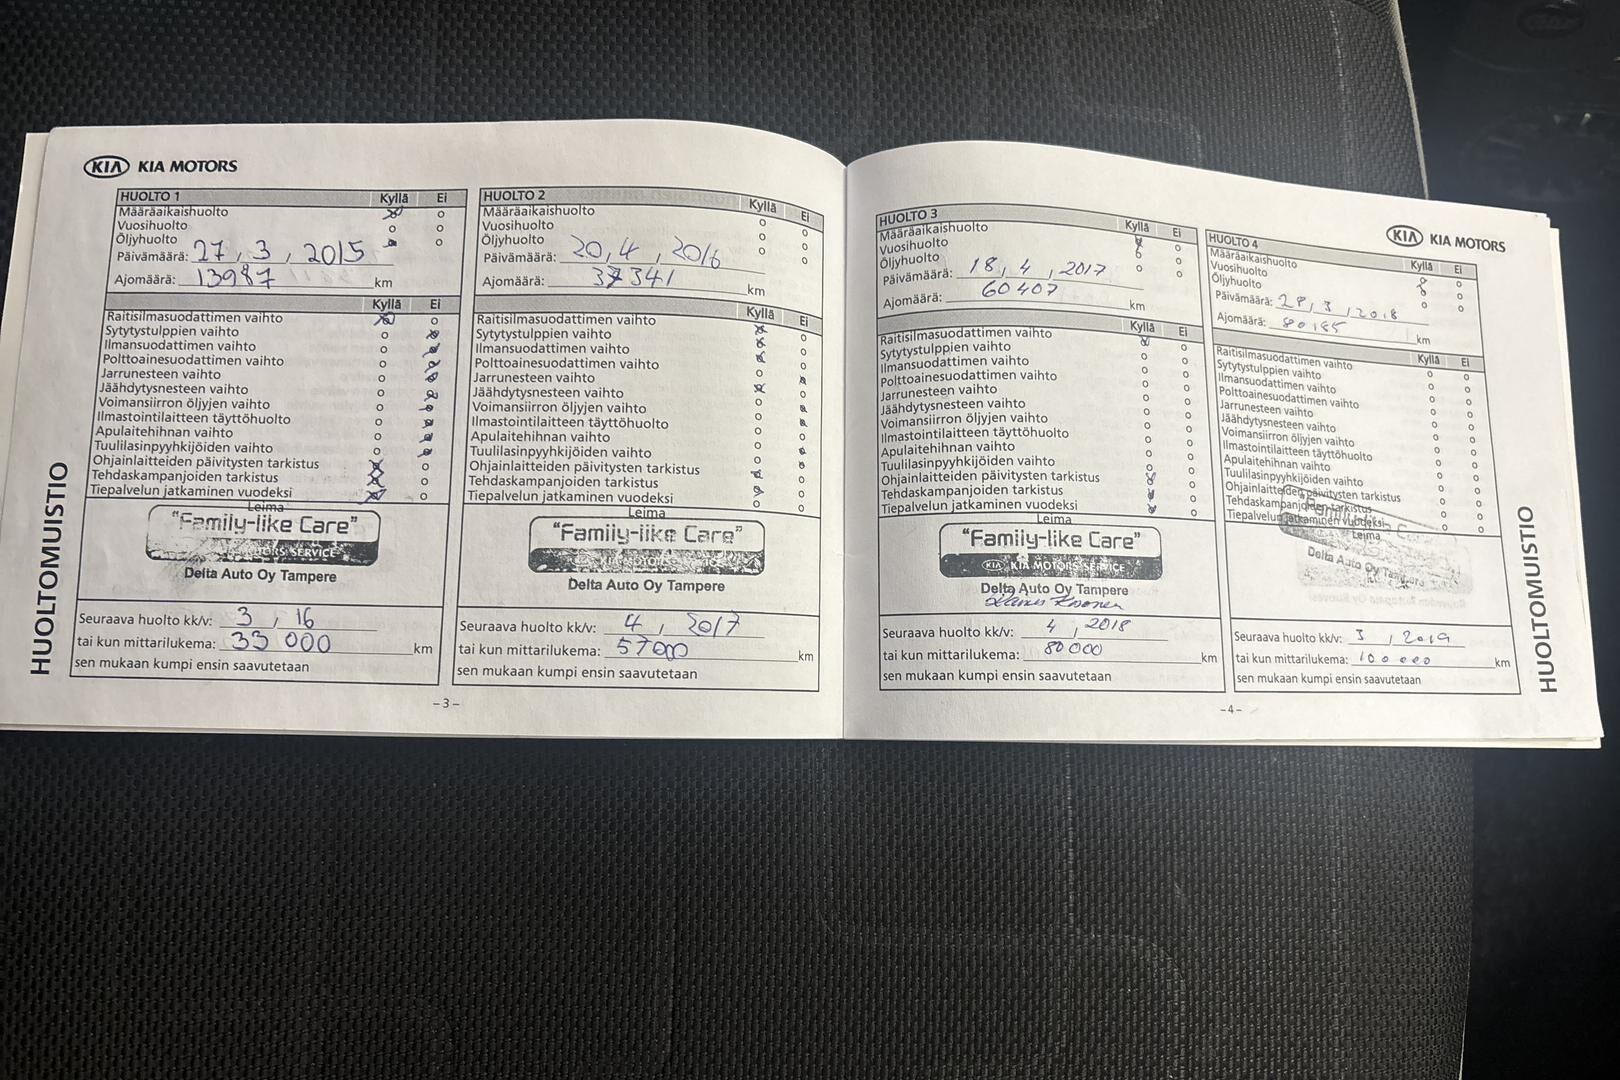 KIA KIA MOTORS
HUOLTO 1 Kyllä Ei
Määräaikaishuolto
Vuosihuolto
Öljyhuolto
Päivämäärä: 27, 3, 2015
Ajomäärä: 13987 km
Kyllä Ei
Raitisilmasuodattimen vaihto
Sytytystulppien vaihto
Ilmansuodattimen vaihto
Polttoainesuodattimen vaihto
Jarrunesteen vaihto
Jäähdytysnesteen vaihto
Voimansiirron öljyjen vaihto
Ilmastointilaitteen täyttöhuolto
Apulaitehihnan vaihto
Tuulilasinpyyhkijöiden vaihto
Ohjainlaitteiden päivitysten tarkistus
Tehdaskampanjoiden tarkistus
Tiepalvelun jatkaminen vuodeksi
Leima
"Family-like Care"
MOTORS SERVICE
Delta Auto Oy Tampere
Seuraava huolto kk/v: 3, 16
tai kun mittarilukema: 33 000 km
sen mukaan kumpi ensin saavutetaan
HUOLTOMUISTIO
HUOLTO 2 Kyllä Ei
Määräaikaishuolto
Vuosihuolto
Öljyhuolto
Päivämäärä: 20, 4, 2016
Ajomäärä: 37341 km
Kyllä Ei
Raitisilmasuodattimen vaihto
Sytytystulppien vaihto
Ilmansuodattimen vaihto
Polttoainesuodattimen vaihto
Jarrunesteen vaihto
Jäähdytysnesteen vaihto
Voimansiirron öljyjen vaihto
Ilmastointilaitteen täyttöhuolto
Apulaitehihnan vaihto
Tuulilasinpyyhkijöiden vaihto
Ohjainlaitteiden päivitysten tarkistus
Tehdaskampanjoiden tarkistus
Tiepalvelun jatkaminen vuodeksi
Leima
"Family-like Care"
KIA MOTORS
Delta Auto Oy Tampere
Seuraava huolto kk/v: 4, 2017
tai kun mittarilukema: 57000 km
sen mukaan kumpi ensin saavutetaan
-3-
HUOLTO 3 Kyllä Ei
Määräaikaishuolto
Vuosihuolto
Öljyhuolto
Päivämäärä: 18, 4, 2017
Ajomäärä: 60407 km
Kyllä Ei
Raitisilmasuodattimen vaihto
Sytytystulppien vaihto
Ilmansuodattimen vaihto
Polttoainesuodattimen vaihto
Jarrunesteen vaihto
Jäähdytysnesteen vaihto
Voimansiirron öljyjen vaihto
Ilmastointilaitteen täyttöhuolto
Apulaitehihnan vaihto
Tuulilasinpyyhkijöiden vaihto
Ohjainlaitteiden päivitysten tarkistus
Tehdaskampanjoiden tarkistus
Tiepalvelun jatkaminen vuodeksi
Leima
"Family-like Care"
KIA KIA MOTORS SERVICE
Delta Auto Oy Tampere
Seuraava huolto kk/v: 4, 2018
tai kun mittarilukema: 80000 km
sen mukaan kumpi ensin saavutetaan
KIA KIA MOTORS
HUOLTO 4 Kyllä Ei
Määräaikaishuolto
Vuosihuolto
Öljyhuolto
Päivämäärä: 28, 3, 2018
Ajomäärä: 80185 km
Kyllä Ei
Raitisilmasuodattimen vaihto
Sytytystulppien vaihto
Ilmansuodattimen vaihto
Polttoainesuodattimen vaihto
Jarrunesteen vaihto
Jäähdytysnesteen vaihto
Voimansiirron öljyjen vaihto
Ilmastointilaitteen täyttöhuolto
Apulaitehihnan vaihto
Tuulilasinpyyhkijöiden vaihto
Ohjainlaitteiden päivitysten tarkistus
Tehdaskampanjoiden tarkistus
Tiepalvelun jatkaminen vuodeksi
Leima
Delta Auto Oy Tampere
Seuraava huolto kk/v: 3, 2019
tai kun mittarilukema: 100000 km
sen mukaan kumpi ensin saavutetaan
-4-
HUOLTOMUISTIO